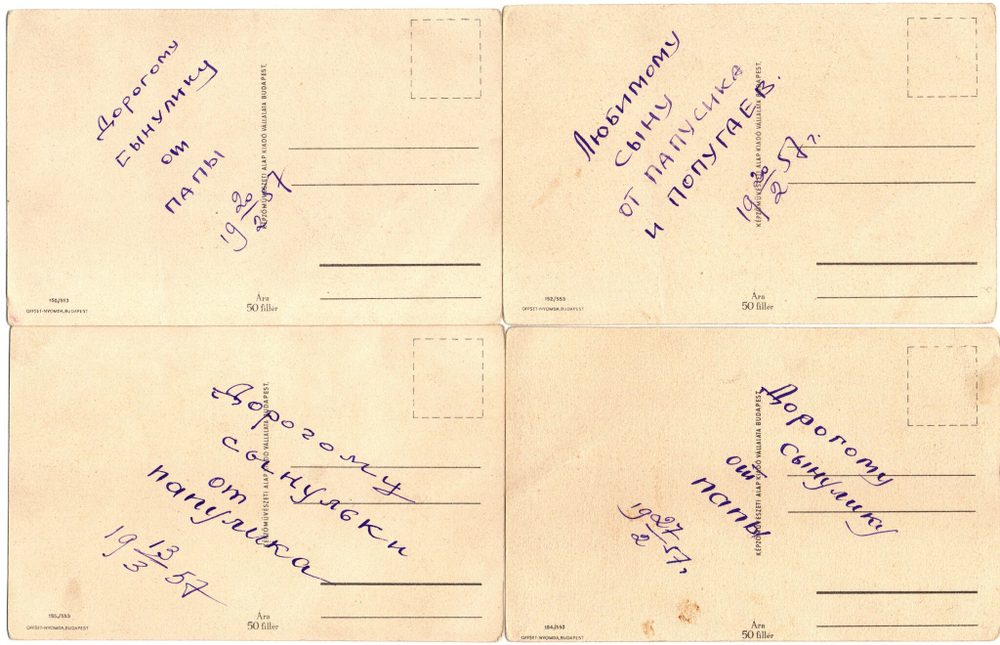 Дорогому
сынулику
от
ПАПЫ
19 20/2 57
KÉPZŐMŰVÉSZETI ALAP KIADÓ VÁLLALATA BUDAPEST.
Ára
50 fillér
OFFSET-NYOMDA, BUDAPEST
Любимому
СЫНУ
ОТ ПАПУСИКА
И ПОПУГАЕВ.
19 20/2 57 г.
KÉPZŐMŰVÉSZETI ALAP KIADÓ VÁLLALATA BUDAPEST.
Ára
50 fillér
OFFSET-NYOMDA, BUDAPEST
Дорогому
сынульки
от
папулика
19 13/3 57
KÉPZŐMŰVÉSZETI ALAP KIADÓ VÁLLALATA BUDAPEST.
Ára
50 fillér
OFFSET-NYOMDA, BUDAPEST
Дорогому
сынулику
от
папы
19 27/2 57 г.
KÉPZŐMŰVÉSZETI ALAP KIADÓ VÁLLALATA BUDAPEST.
Ára
50 fillér
OFFSET-NYOMDA, BUDAPEST